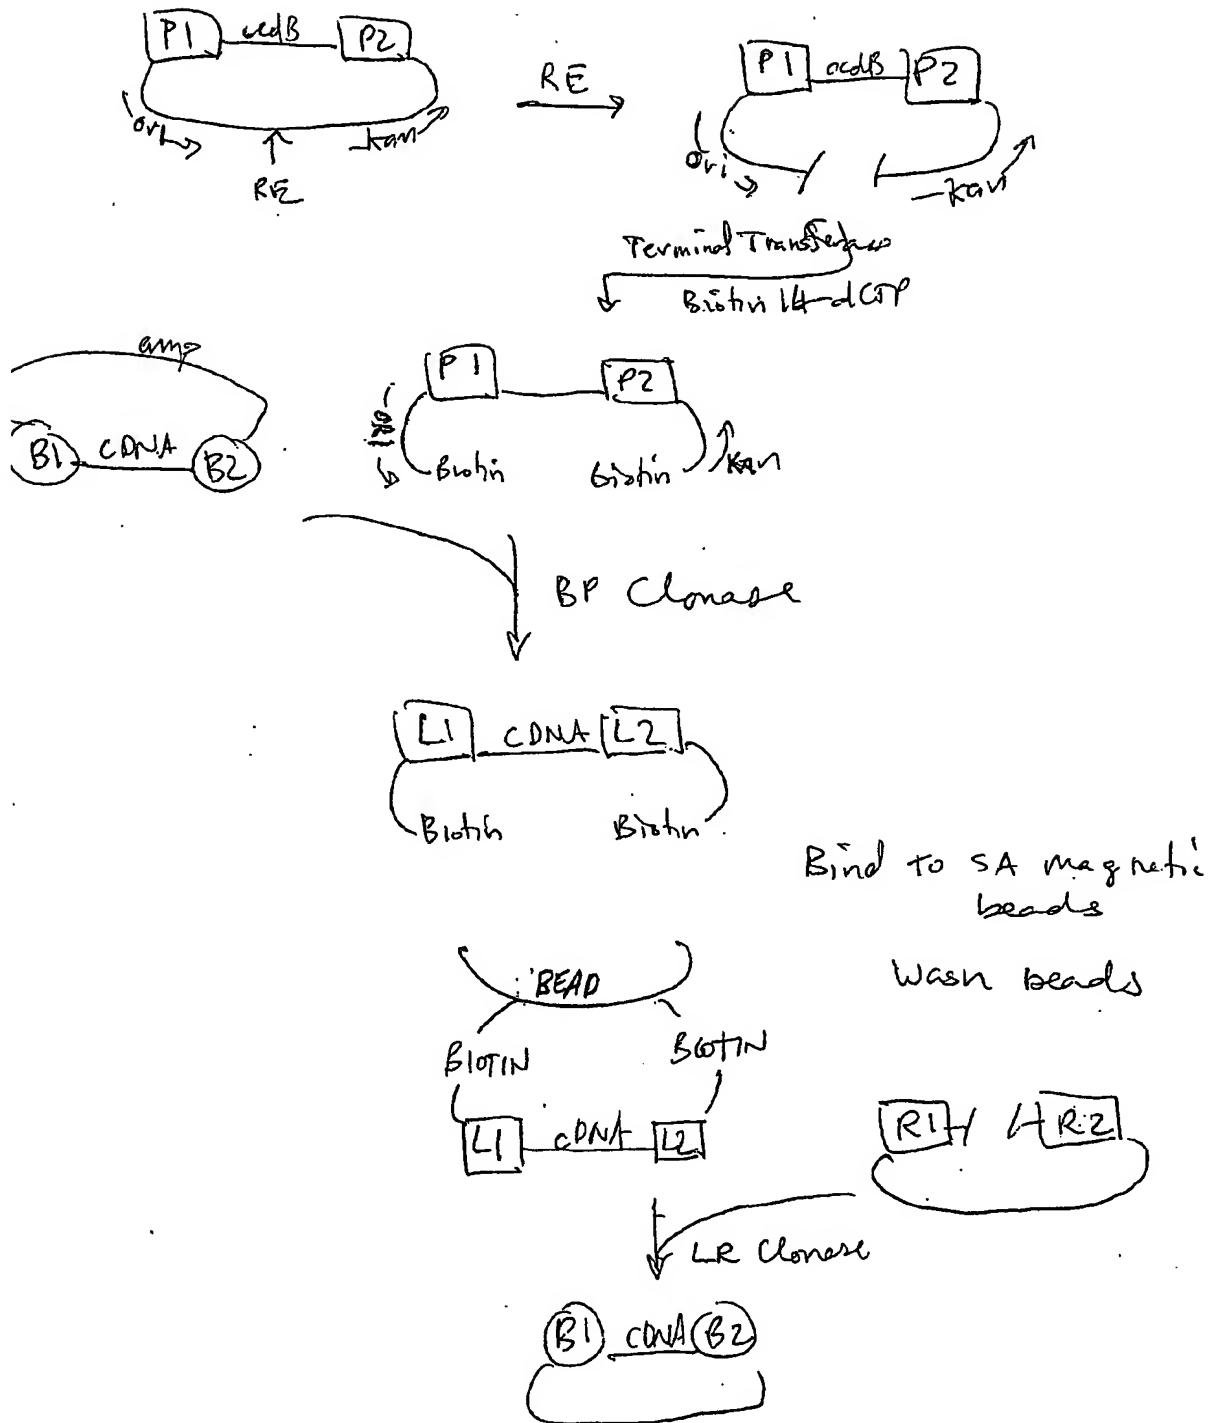 P1 ccdB P2
P1 ccdB P2
RE
ori kan
RE
Ori kan
Terminal Transferase
Biotin 14-dCTP
amp
P1 P2
B1 CDNA B2
ORI
Biotin Biotin Kan
BP Clonase
L1 CDNA L2
Biotin Biotin
Bind to SA magnetic
beads
Wash beads
BEAD
BIOTIN BIOTIN
L1 cDNA L2
R1 R2
LR Clonase
B1 CDNA B2